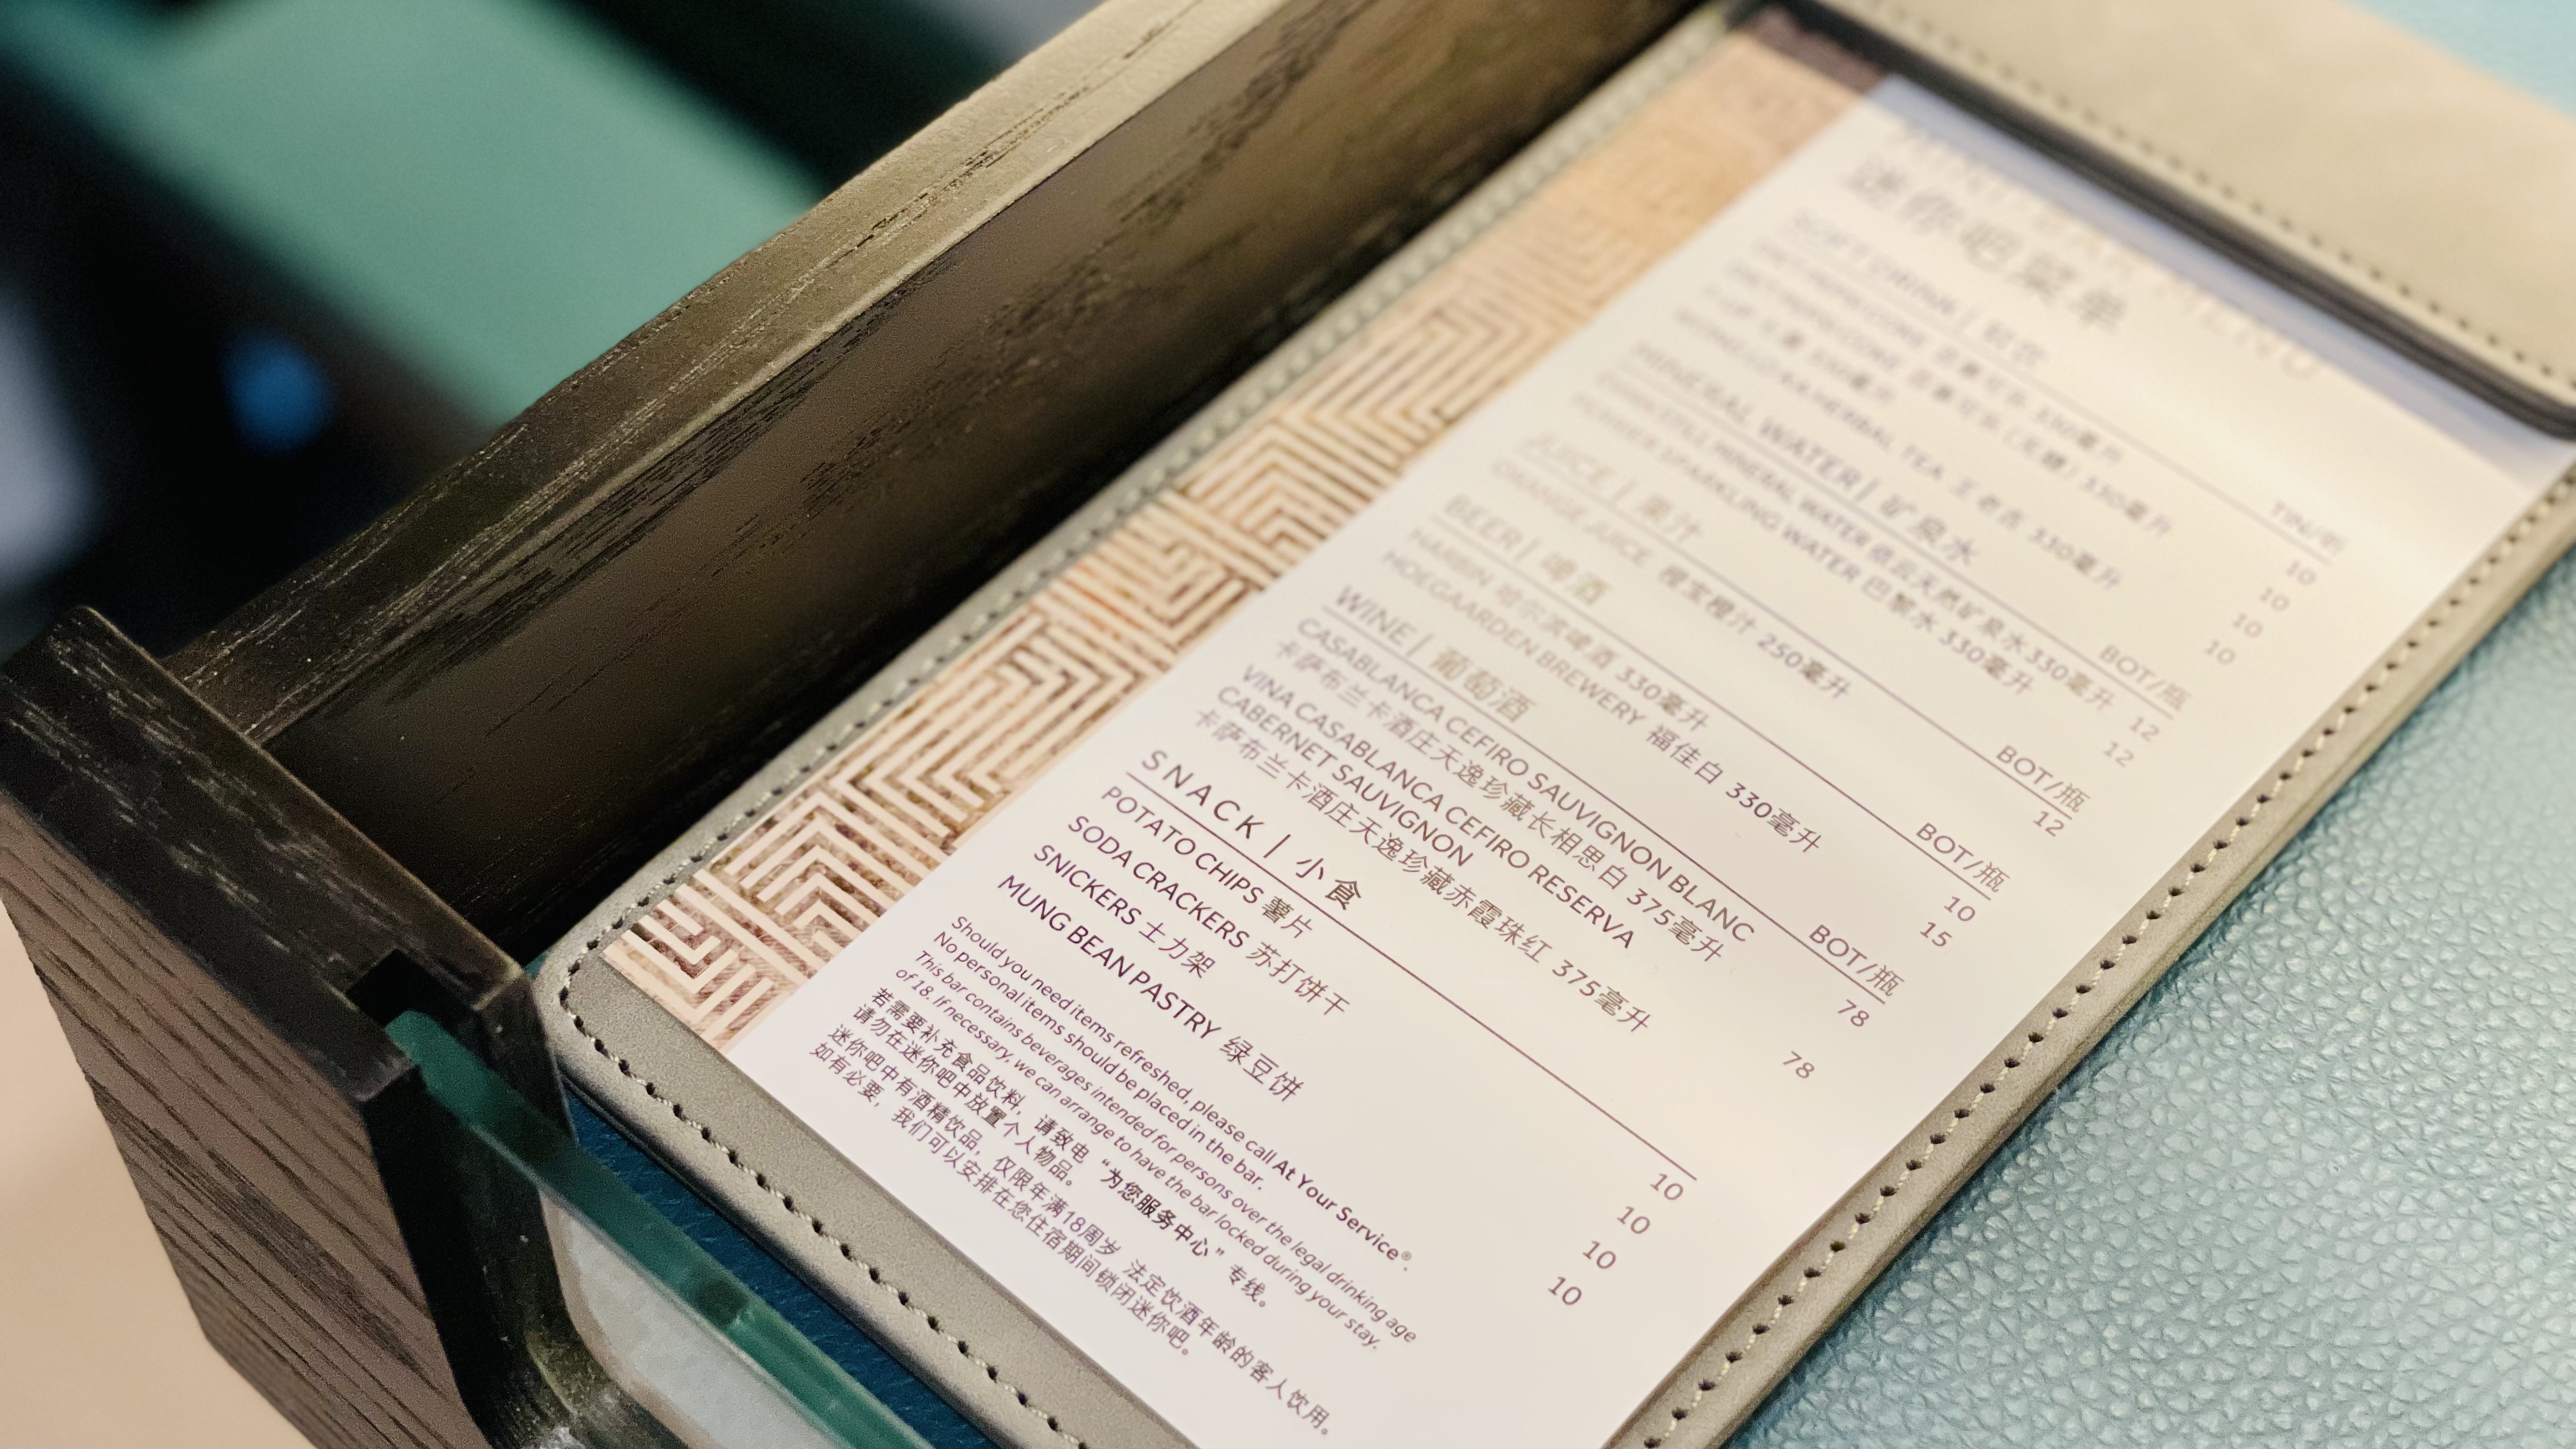 迷你吧菜单
SOFT DRINK | 软饮 TIN/听
百事可乐 330毫升 10
百事可乐（无糖）330毫升 10
330毫升 10
HERBAL TEA 王老吉 330毫升 10
MINERAL WATER | 矿泉水 BOT/瓶
STILL MINERAL WATER 依云天然矿泉水 330毫升 12
PERRIER SPARKLING WATER 巴黎水 330毫升 12
JUICE | 果汁 BOT/瓶
ORANGE JUICE 橙宝橙汁 250毫升 12
BEER | 啤酒 BOT/瓶
HARBIN 哈尔滨啤酒 330毫升 10
HOEGAARDEN BREWERY 福佳白 330毫升 15
WINE | 葡萄酒 BOT/瓶
CASABLANCA CEFIRO SAUVIGNON BLANC
卡萨布兰卡酒庄天逸珍藏长相思白 375毫升 78
VINA CASABLANCA CEFIRO RESERVA
CABERNET SAUVIGNON
卡萨布兰卡酒庄天逸珍藏赤霞珠红 375毫升 78
SNACK | 小食
POTATO CHIPS 薯片 10
SODA CRACKERS 苏打饼干 10
SNICKERS 士力架 10
MUNG BEAN PASTRY 绿豆饼 10
Should you need items refreshed, please call At Your Service®.
No personal items should be placed in the bar.
This bar contains beverages intended for persons over the legal drinking age
of 18. If necessary, we can arrange to have the bar locked during your stay.
若需要补充食品饮料，请致电“为您服务中心”专线。
请勿在迷你吧中放置个人物品。
迷你吧中有酒精饮品，仅限年满18周岁，法定饮酒年龄的客人饮用。
如有必要，我们可以安排在您住宿期间锁闭迷你吧。